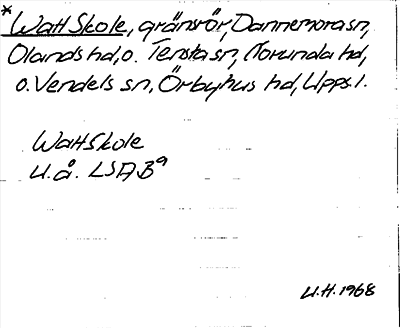 * Watt Skole, gränsrör, Dannemora sn,
Olands hd, o. Tensta sn, Norunda hd,
o. Vendels sn, Örbyhus hd, Upps. l.
Wattskole
U.å. LSA B9
U.H. 1968